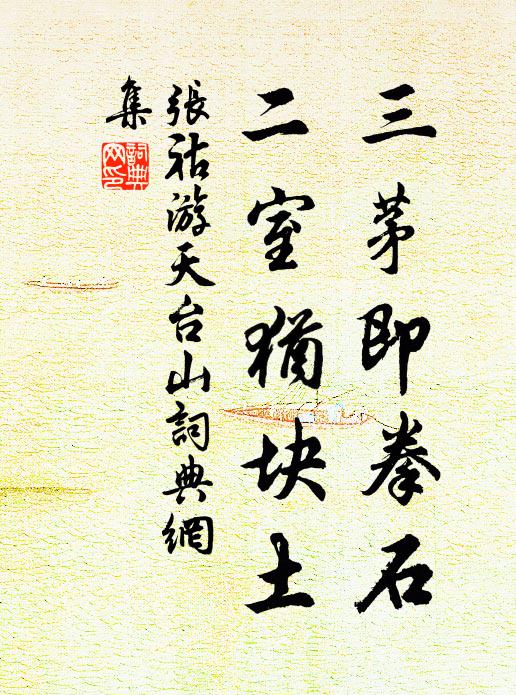 三茅即拳石
二室犹块土
張祜游天台山詞典網
集
詞典網印